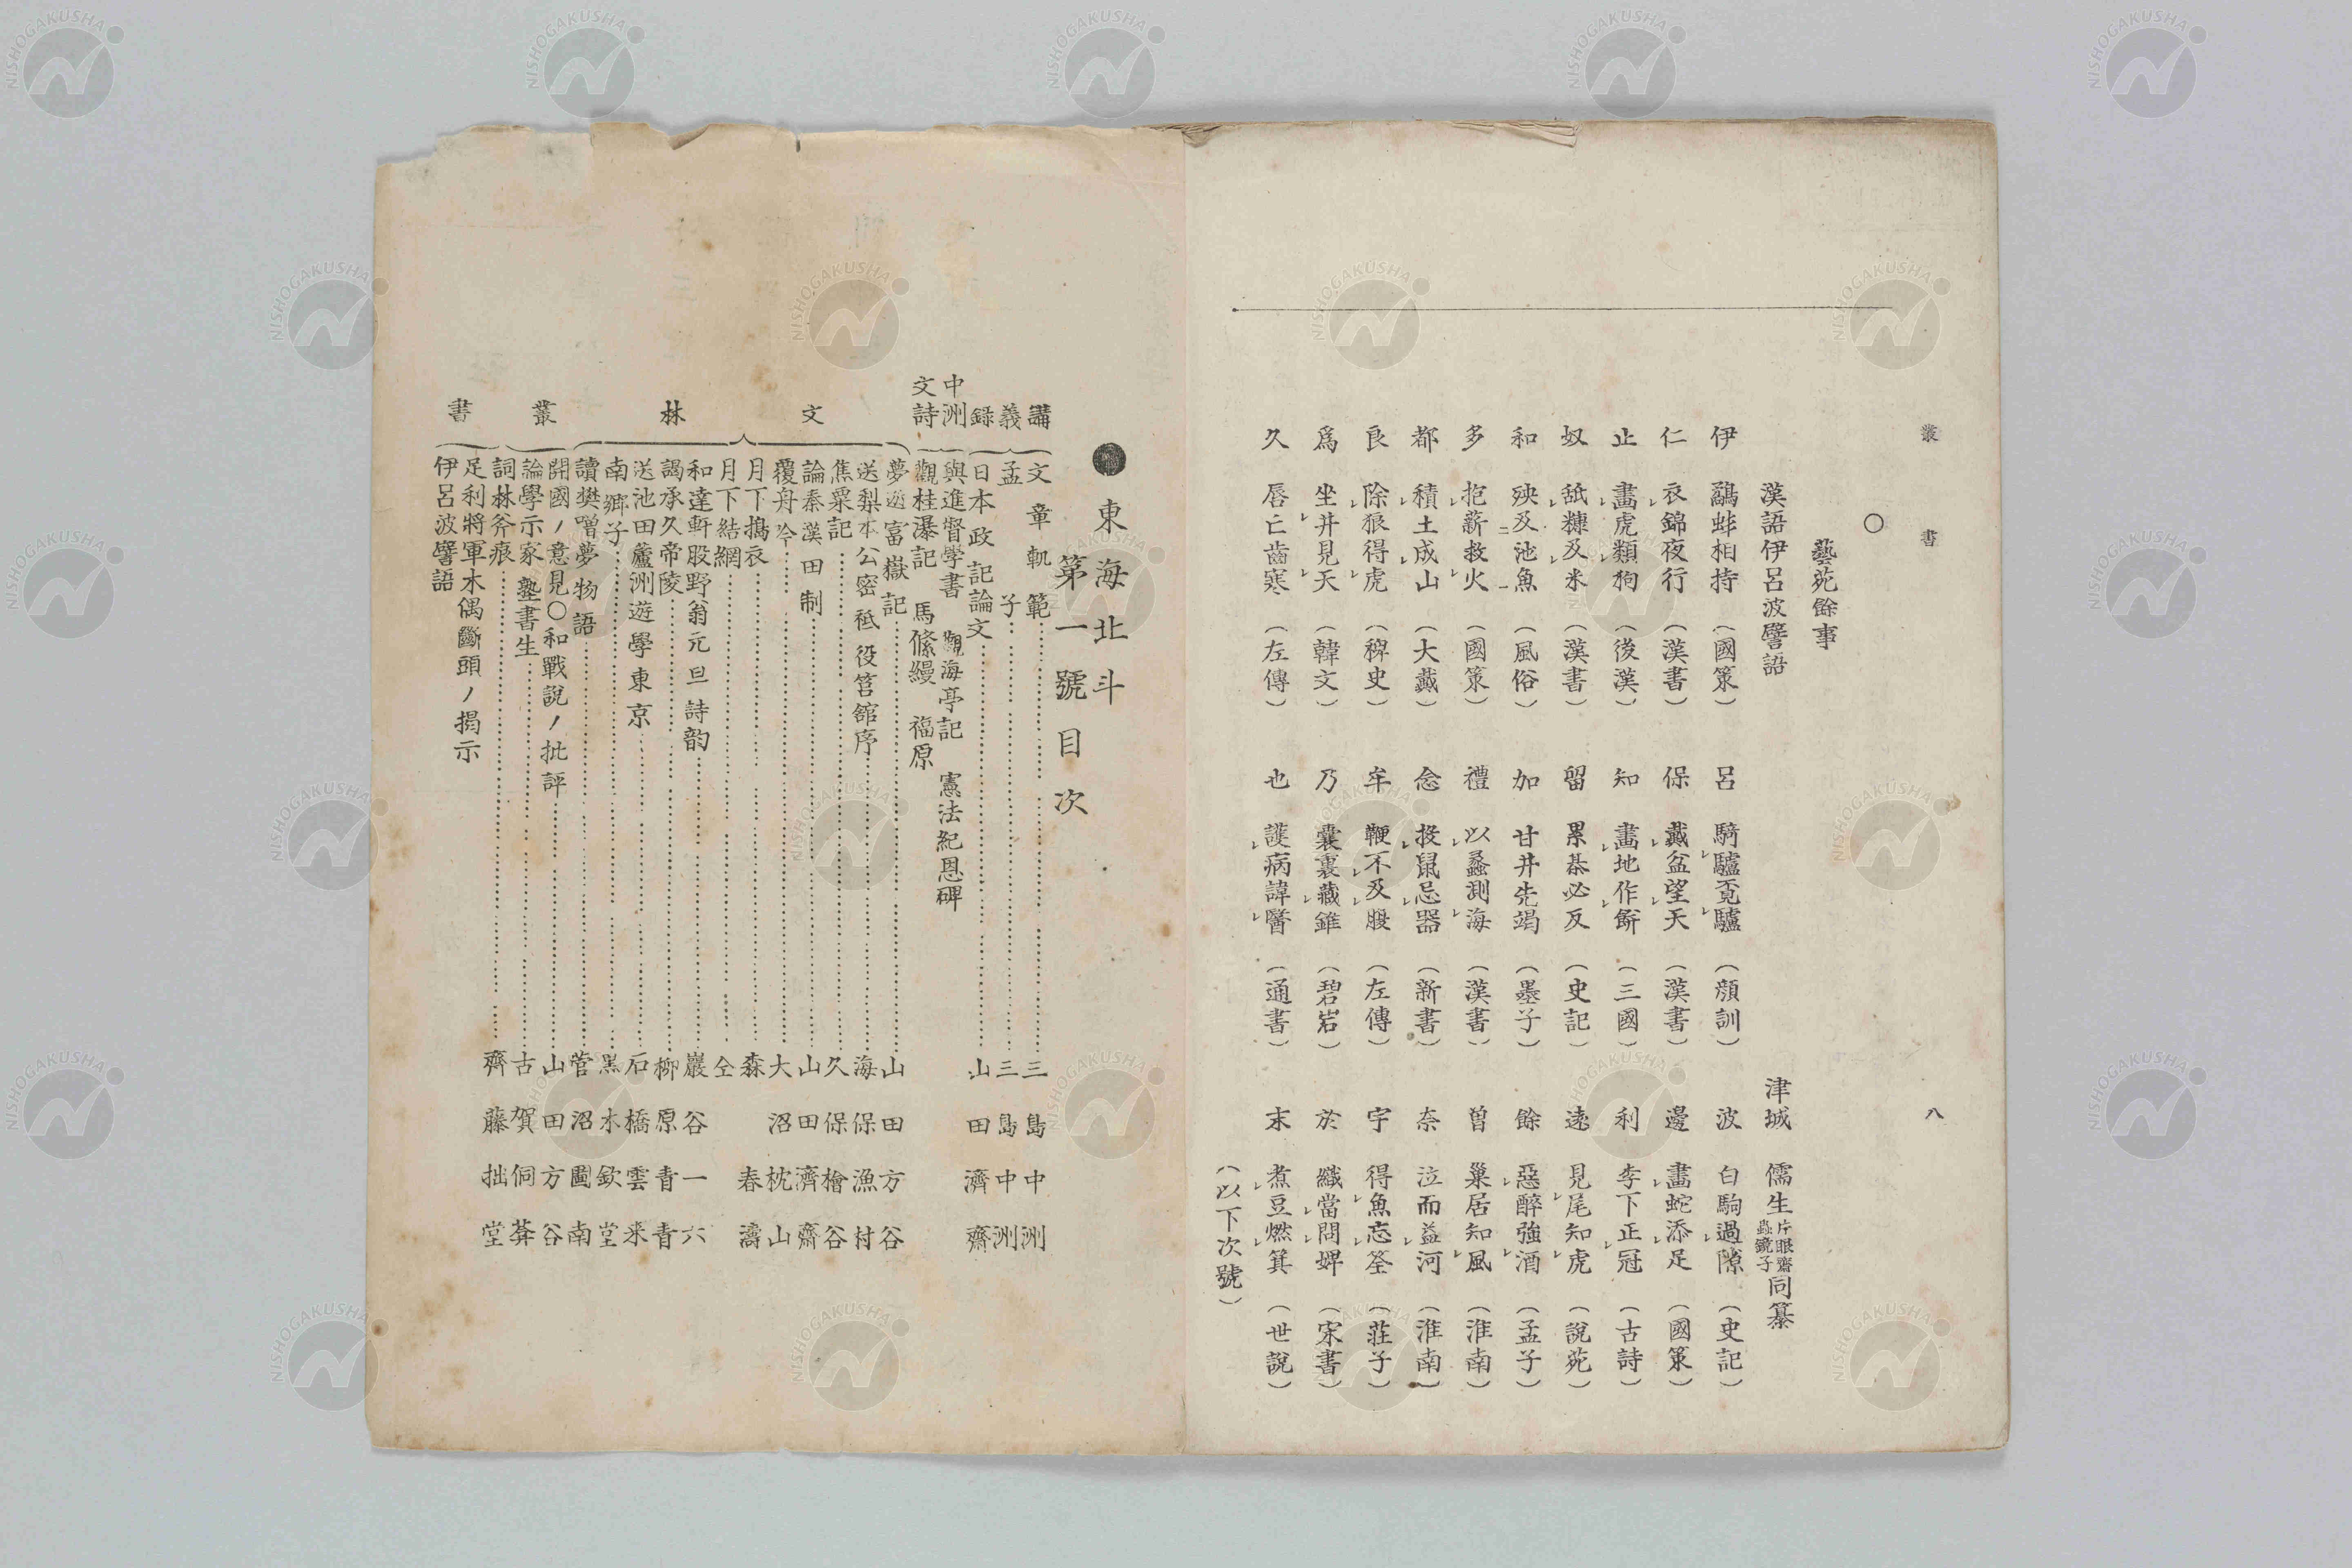 叢書
八
○
藝苑餘事
漢語伊呂波譬語　津城　儒生　片眼齋　蟲鏡子　同纂
伊　鷸蚌相持（國策）　呂　騎驢覓驢（顔訓）　波　白駒過隙（史記）
仁　衣錦夜行（漢書）　保　戴盆望天（漢書）　邊　畫蛇添足（國策）
止　畫虎類狗（後漢）　知　畫地作餅（三國）　利　李下正冠（古詩）
奴　舐糠及米（漢書）　留　累棊必反（史記）　遠　見尾知虎（說苑）
和　殃及池魚（風俗）　加　甘井先竭（墨子）　餘　惡醉強酒（孟子）
多　抱薪救火（國策）　禮　以蠡測海（漢書）　曾　巢居知風（淮南）
都　積土成山（大戴）　念　投鼠忌器（新書）　奈　泣而益河（淮南）
良　除狼得虎（稗史）　牟　鞭不及腹（左傳）　宇　得魚忘筌（莊子）
爲　坐井見天（韓文）　乃　囊裏藏錐（碧岩）　於　織當問婢（宋書）
久　唇亡齒寒（左傳）　也　護病諱醫（通書）　末　煮豆燃萁（世說）
（以下次號）
●東海北斗
第一號目次
講義録
文章軌範……三島中洲
孟子……三島中洲
日本政記論文……山田濟齋
中洲文詩
與進督學書　觀海亭記　憲法紀恩碑
觀桂瀑記　馬絛縵　福原
文林
夢遊富嶽記……山田方谷
送梨本公密祗役笞舘序……海保漁村
焦粟記……久保檜谷
論秦漢田制……山田濟齋
覆舟岺……大沼枕山
月下擣衣……森春濤
月下結網……仝
和達軒股野翁元旦詩韵……巖谷一六
謁承久帝陵……柳原青青
送池田蘆洲遊學東京……石橋雲來
南郷子……黒木欽堂
讀樊噲夢物語……菅沼圖南
叢書
開國ノ意見○和戰說ノ批評……山田方谷
論學示家塾書生……古賀侗菴
詞林斧痕……齊藤拙堂
足利將軍木偶斷頭ノ揭示
伊呂波譬語